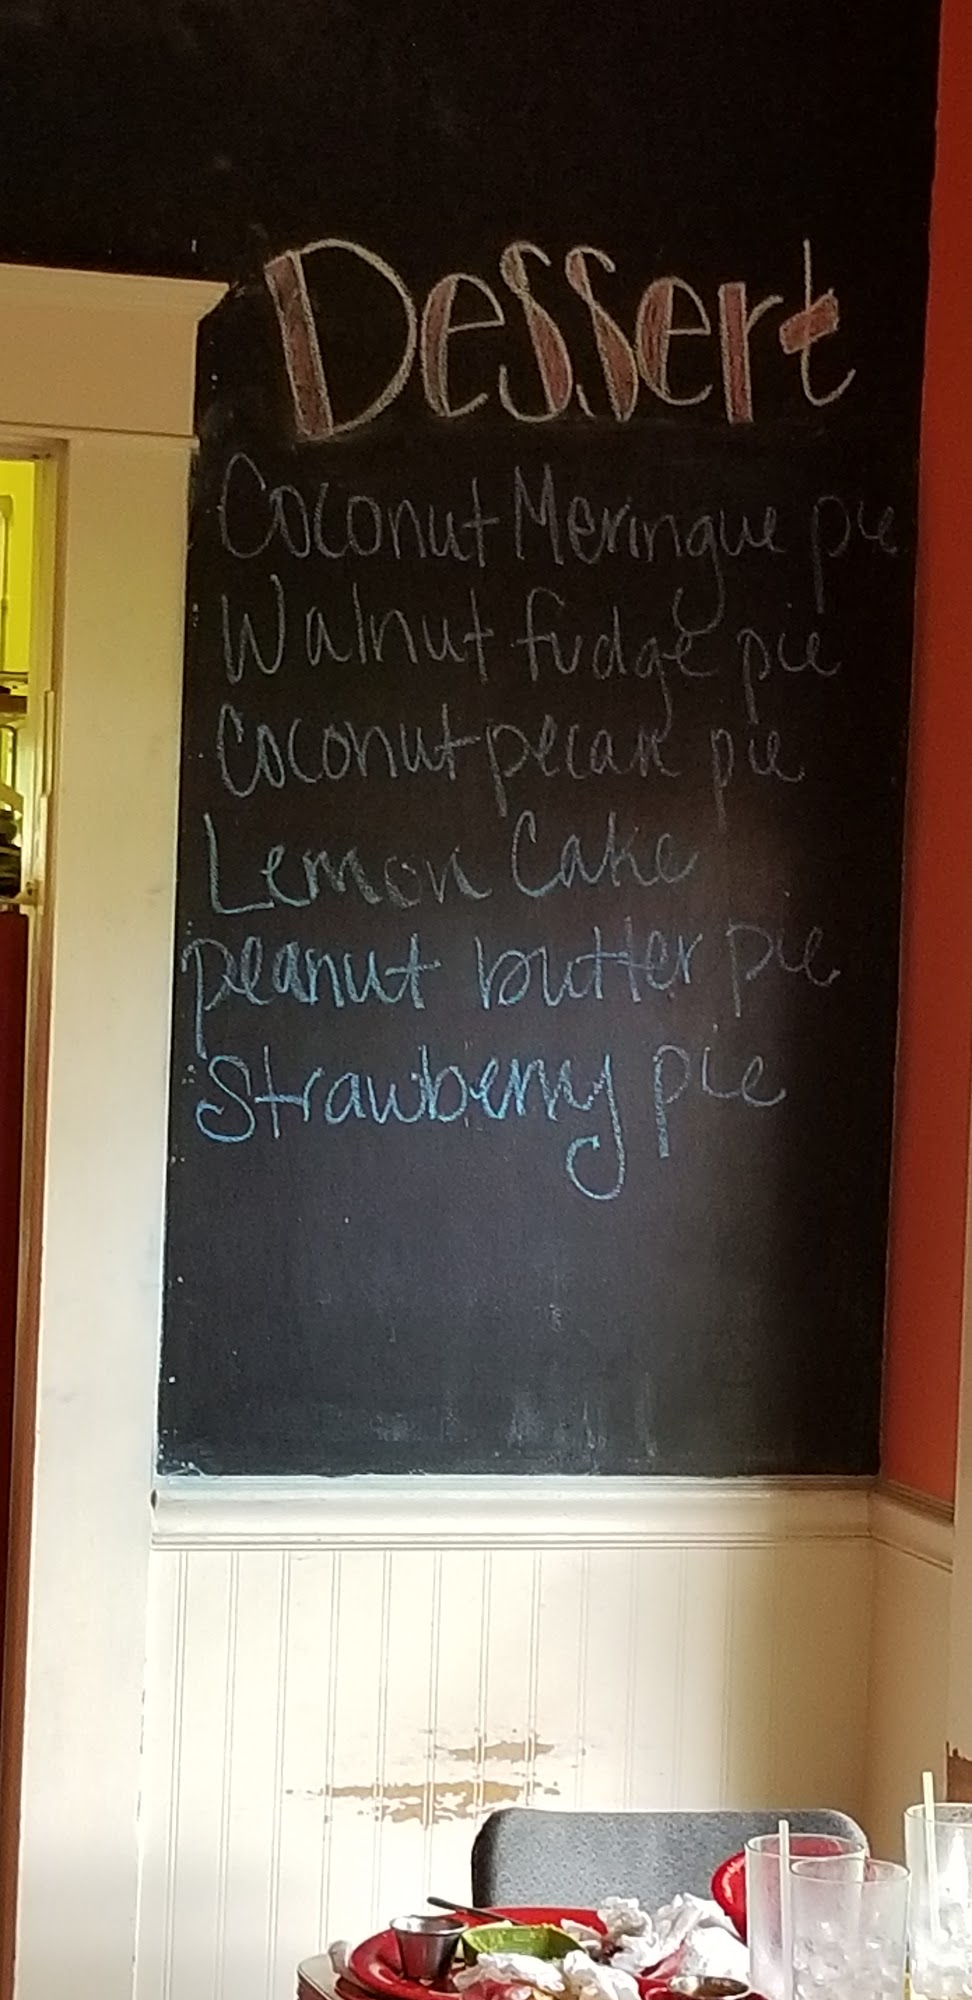 Dessert
Coconut Meringue pie
Walnut fudge pie
Coconut pecan pie
Lemon Cake
peanut butter pie
Strawberry pie